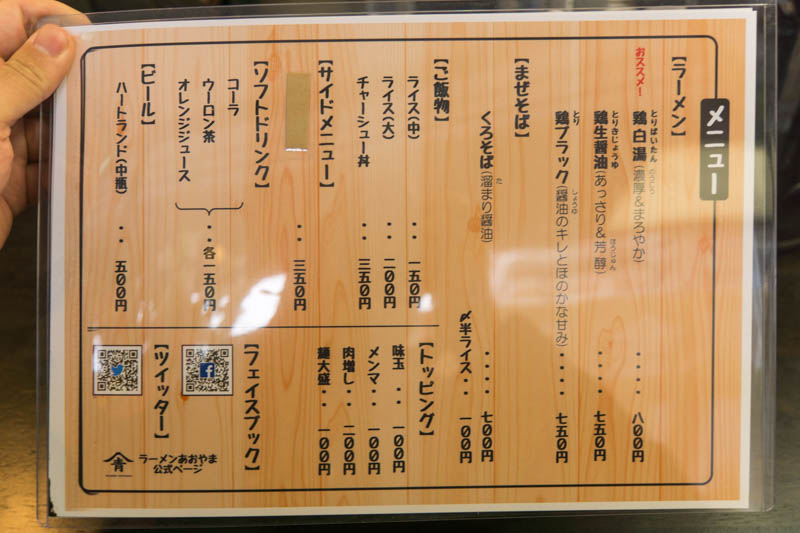 メニュー
【ラーメン】
おススメ!
とりぱいたん のうこう
鶏白湯(濃厚&まろやか)・・・・八〇〇円
とりきじょうゆ ほうじゅん
鶏生醤油(あっさり&芳醇)・・・・七五〇円
とり しょうゆ
鶏ブラック(醤油のキレとほのかな甘み)・・・・七五〇円
【まぜそば】
た
くろそば(溜まり醤油)・・・・七〇〇円
〆半ライス・・一〇〇円
【ご飯物】
ライス(中)・・一五〇円
ライス(大)・・二〇〇円
チャーシュー丼・・三五〇円
【サイドメニュー】
・・三五〇円
【ソフトドリンク】
コーラ
ウーロン茶
オレンジジュース
・・各一五〇円
【ビール】
ハートランド(中瓶)・・五〇〇円
【トッピング】
味玉・・一〇〇円
メンマ・・一〇〇円
肉増し・・二〇〇円
麺大盛・・一〇〇円
【フェイスブック】
【ツイッター】
青
ラーメンあおやま
公式ページ